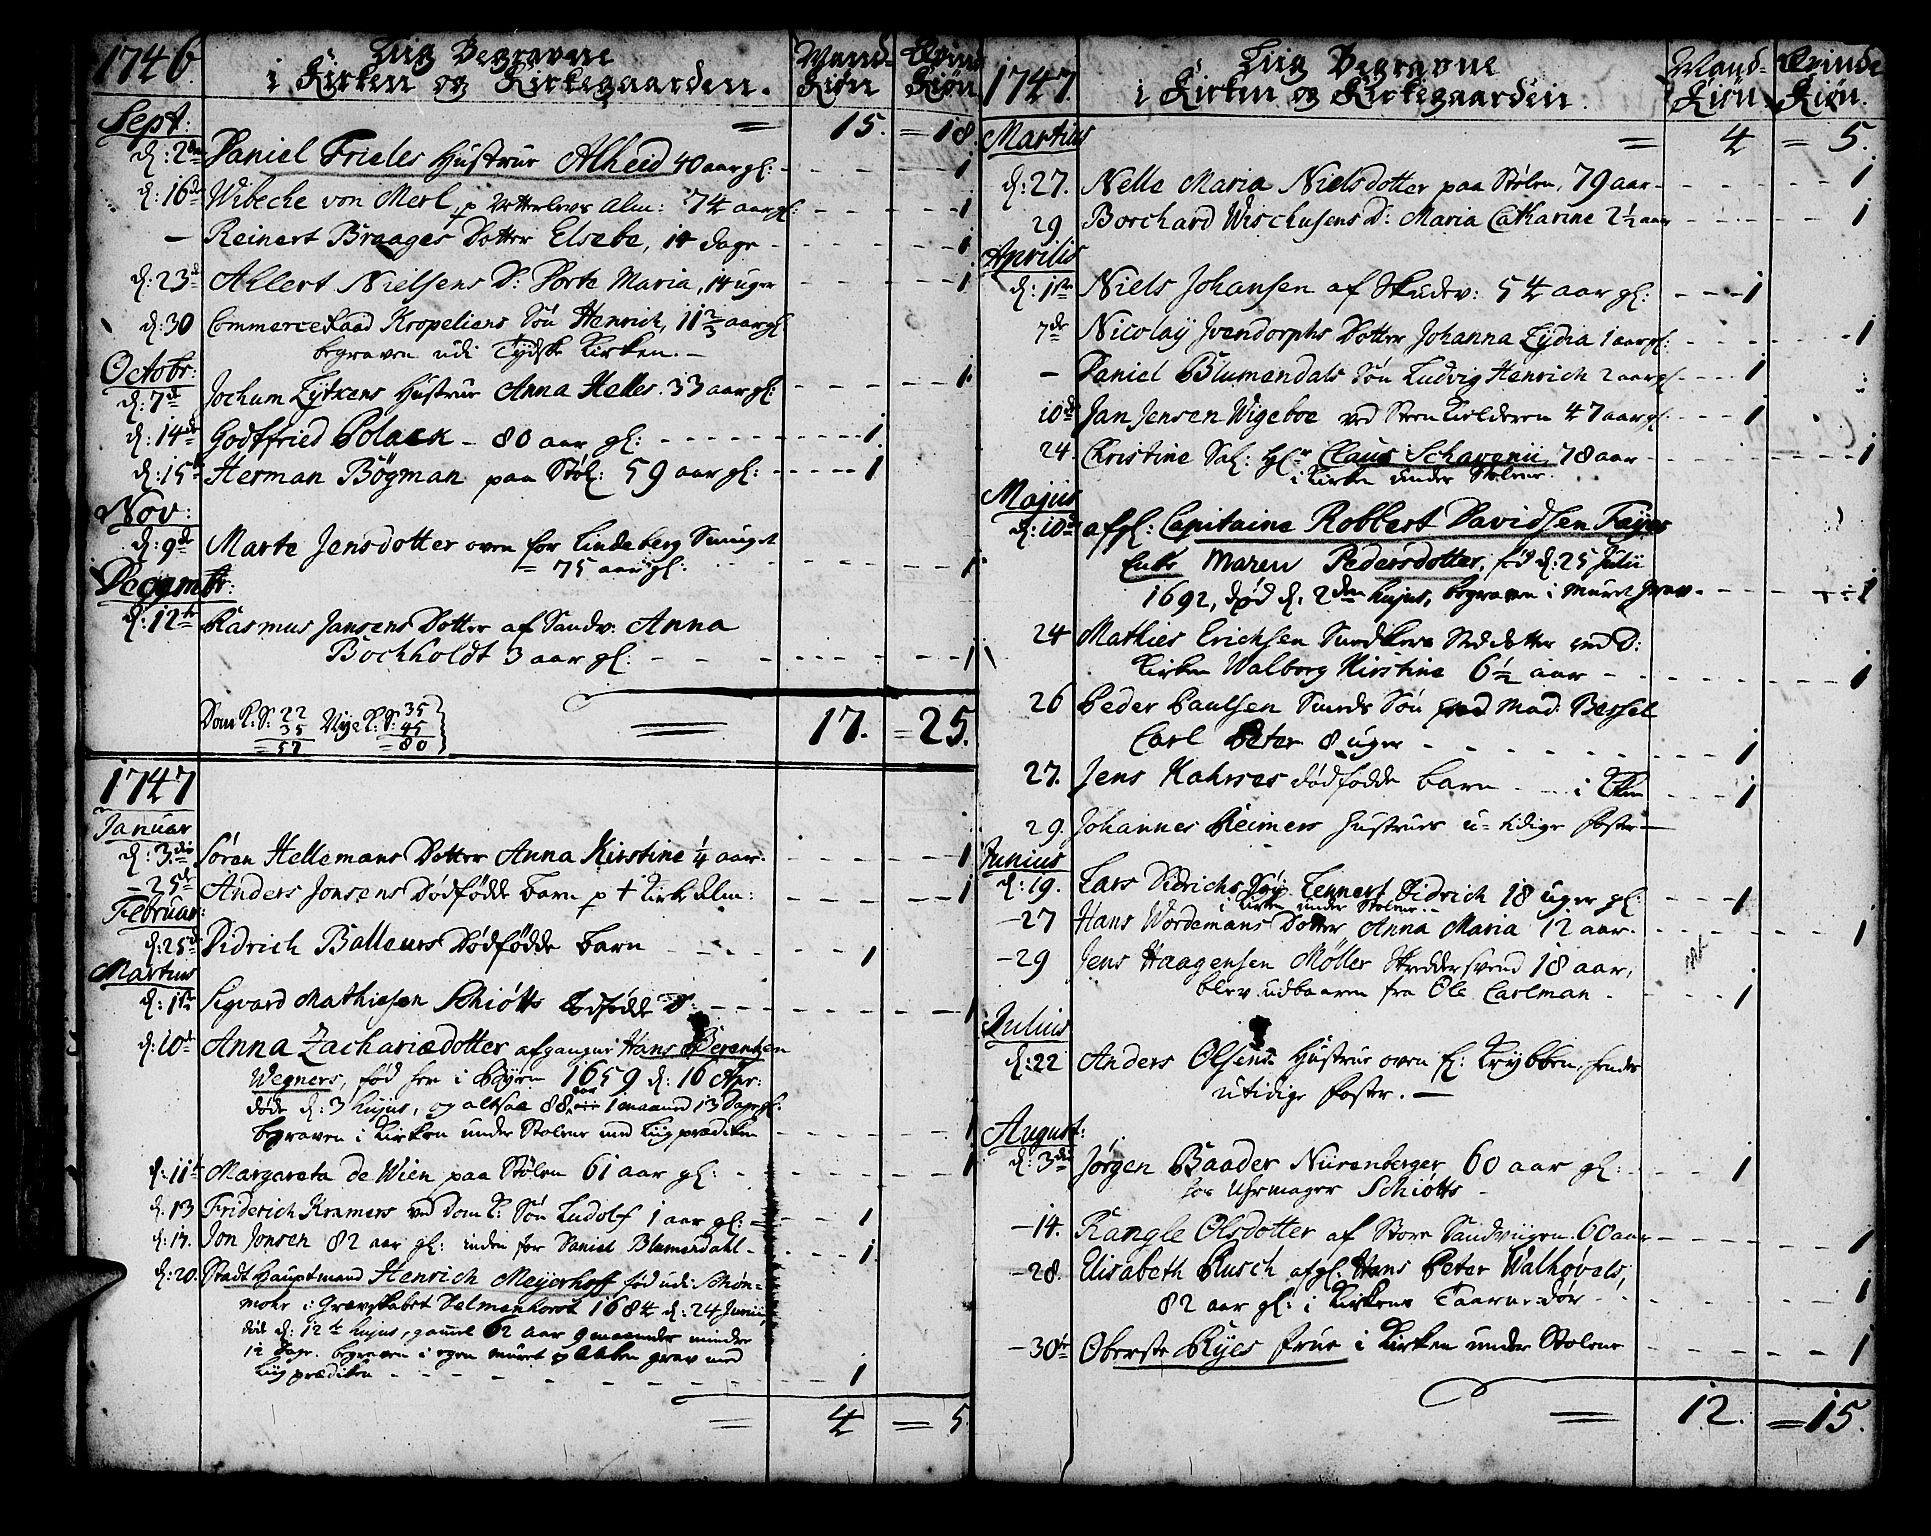 1746. Liig Begravne Mand- Qvind
i Kirken og Kirkegaarden. Kiøn Kiøn
Sept: = 15. = 18.
d: 2den Daniel Frieles Hustrue Alheed 40 aar gl: - - - 1
d: 16de Wibeche von Merl, p alm: 74 aar gl: - - - 1
— Reinert Braages Dotter Elsebe, 14 dage - - - 1
d: 23de Allert Nielsens D: Dorte Maria, 14 uger - - - 1
d: 30 Commerce Raad Kropeliens Søn Henrich, 11 2/3 aar gl:
begraven udi Tydske Kirken. —
Octobr:
d: 7de Jochum Lytkens Hustrue Anna Helles. 33 aar gl: - - - 1.
d: 14de Godtfried Polack - 80 aar gl: - - - 1.
d: 15de Herman Bögman paa Støl: 59 aar gl: - - - 1
Nov:
d: 9de Marte Jensdotter oven for Lindeberg
= 75 aar gl: - - - 1
Decembr:
d: 12te Rasmus Jansens Dotter af Sandv: Anna
Bochholdt 3 aar gl: - - - 1
Dom K: S: 22 Nye K: S: 35
35 45
= 57 = 80
17. = 25.
1747
Januar
d: 3die Søran Hellemans Dotter Anna Kirstine 1/4 aar. - - - 1
- 25de Anders Jonsens Dödfödde barn p + Kirke Alm: - - - 1
Februar:
d: 25de Didrich Balleurs Dödfödde barn - - - 1
Martius
d: 1te Segvard Mathiesen Schiøtts dødfødde D: - - - 1
d: 10de Anna Zachariædotter afgangne Hans Berentzen
Wegners, fød her i Byen 1659 d: 16 Apr:
døde d: 3 hujus, og altsaa 88 aar 1 maaned 13 Dage gl:
begraven i Kirken under Stolene med Liigprædiken - - 1
d: 11te Margareta de Wien paa Stølen 61 aar gl: - - - 1
d: 13 Friderich Kramers ved Dom K: Søn Ludolf 1 aar gl: - - - 1
d: 14. Jon Jonsen 82 aar gl: inden for Daniel Blumendahl - - - 1
d: 20. Stadt Hauptmand Henrich Meyerhoff fød udi Schön-
mohr i Grevskabet Delmenhorst 1684 d: 24 Junii,
døde d: 12te hujus, gammel 62 aar 9 maaneder mindre
12 Dage. begraven i egen muret aaben grav med
Liigprædiken - - - 1
= 4 = 5.
1747. Liig Begravne Mand- Qvinde
i Kirken og Kirkegaarden. Kiøn. Kiøn.
Martius = 4 = 5.
d: 27. Nelle Maria Nielsdotter paa Stølen, 79 aar - - - 1
29 Borchard Wischusens D: Maria Catharine 2 1/2 aar - - - 1
Aprilis
d: 1te Niels Johansen af Skudev: 54 aar gl: - - - 1
7de Nicolaÿ Jvendorphs Dotter Johanna Lÿdia 1 aar gl: - - - 1
— Daniel Blumendals Søn Ludvig Henrich 2 aar gl - - - 1
10de Jan Jensen Wigeboe ved Steen Kielderen 47 aar gl: - - - 1
24. Christine Sal: Hr Claus Schavenii, 78 aar - - - 1
i Kirken under Stolene.
Majus
d: 10de afgl: Capitaine Robbert Davidsen Fayes
Enke Maren Pedersdotter, fød d: 25 Julii
1692, død d: 2den hujus, begraven i muret Grav - - - 1
24 Mathies Erichsen Steddotter ved D:
Kirken Walborg Kirstine 6 1/2 aar - - - 1
26 Peder Paulsen Smeds Søn ved Mad: Bessel
Carl Peter 8 uger - - - 1
27. Jens Kahrses dødfødde barn - - i - - - 1
29. Johannes Reimers Hustrues u-tidige foster —
Junius
d: 19. Lars Didrichs Søn Lennert Didrich 18 uger gl: - - - 1
i Kirken under Stolene --
- 27 Hans Wordemans Dotter Anna Maria 12 aar. - - - 1
- 29 Jens Haagensen Møller Skreddersvend 18 aar,
blev udbaaren fra Ole Carlman - - - 1
Julius
d: 22 Anders Olsens Hustrue oven f: Krybben, hendes
utidige foster. —
August:
d: 3die Jørgen Baader Nürenberger 60 aar gl: - - - 1
hos Uhrmager Schiøtts -
- 14. Rangle Olsdotter af Store Sandvigen. 60 aar - - - 1
- 28. Elisabeth Rusch afgl: Hans Peter Walhøvels,
82 aar gl: i Kirkens Taarne dør - - - 1
- 30te Oberste Ryes frue i Kirken under Stolene - - - 1
= 12. = 15.